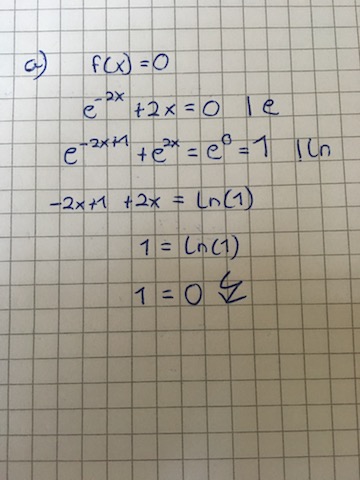 a) f(x)=0
e^{-2x} +2x = 0 | e
e^{-2x+1} +e^{2x} = e^0 = 1 | ln
-2x+1 +2x = ln(1)
1 = ln(1)
1 = 0 ↯